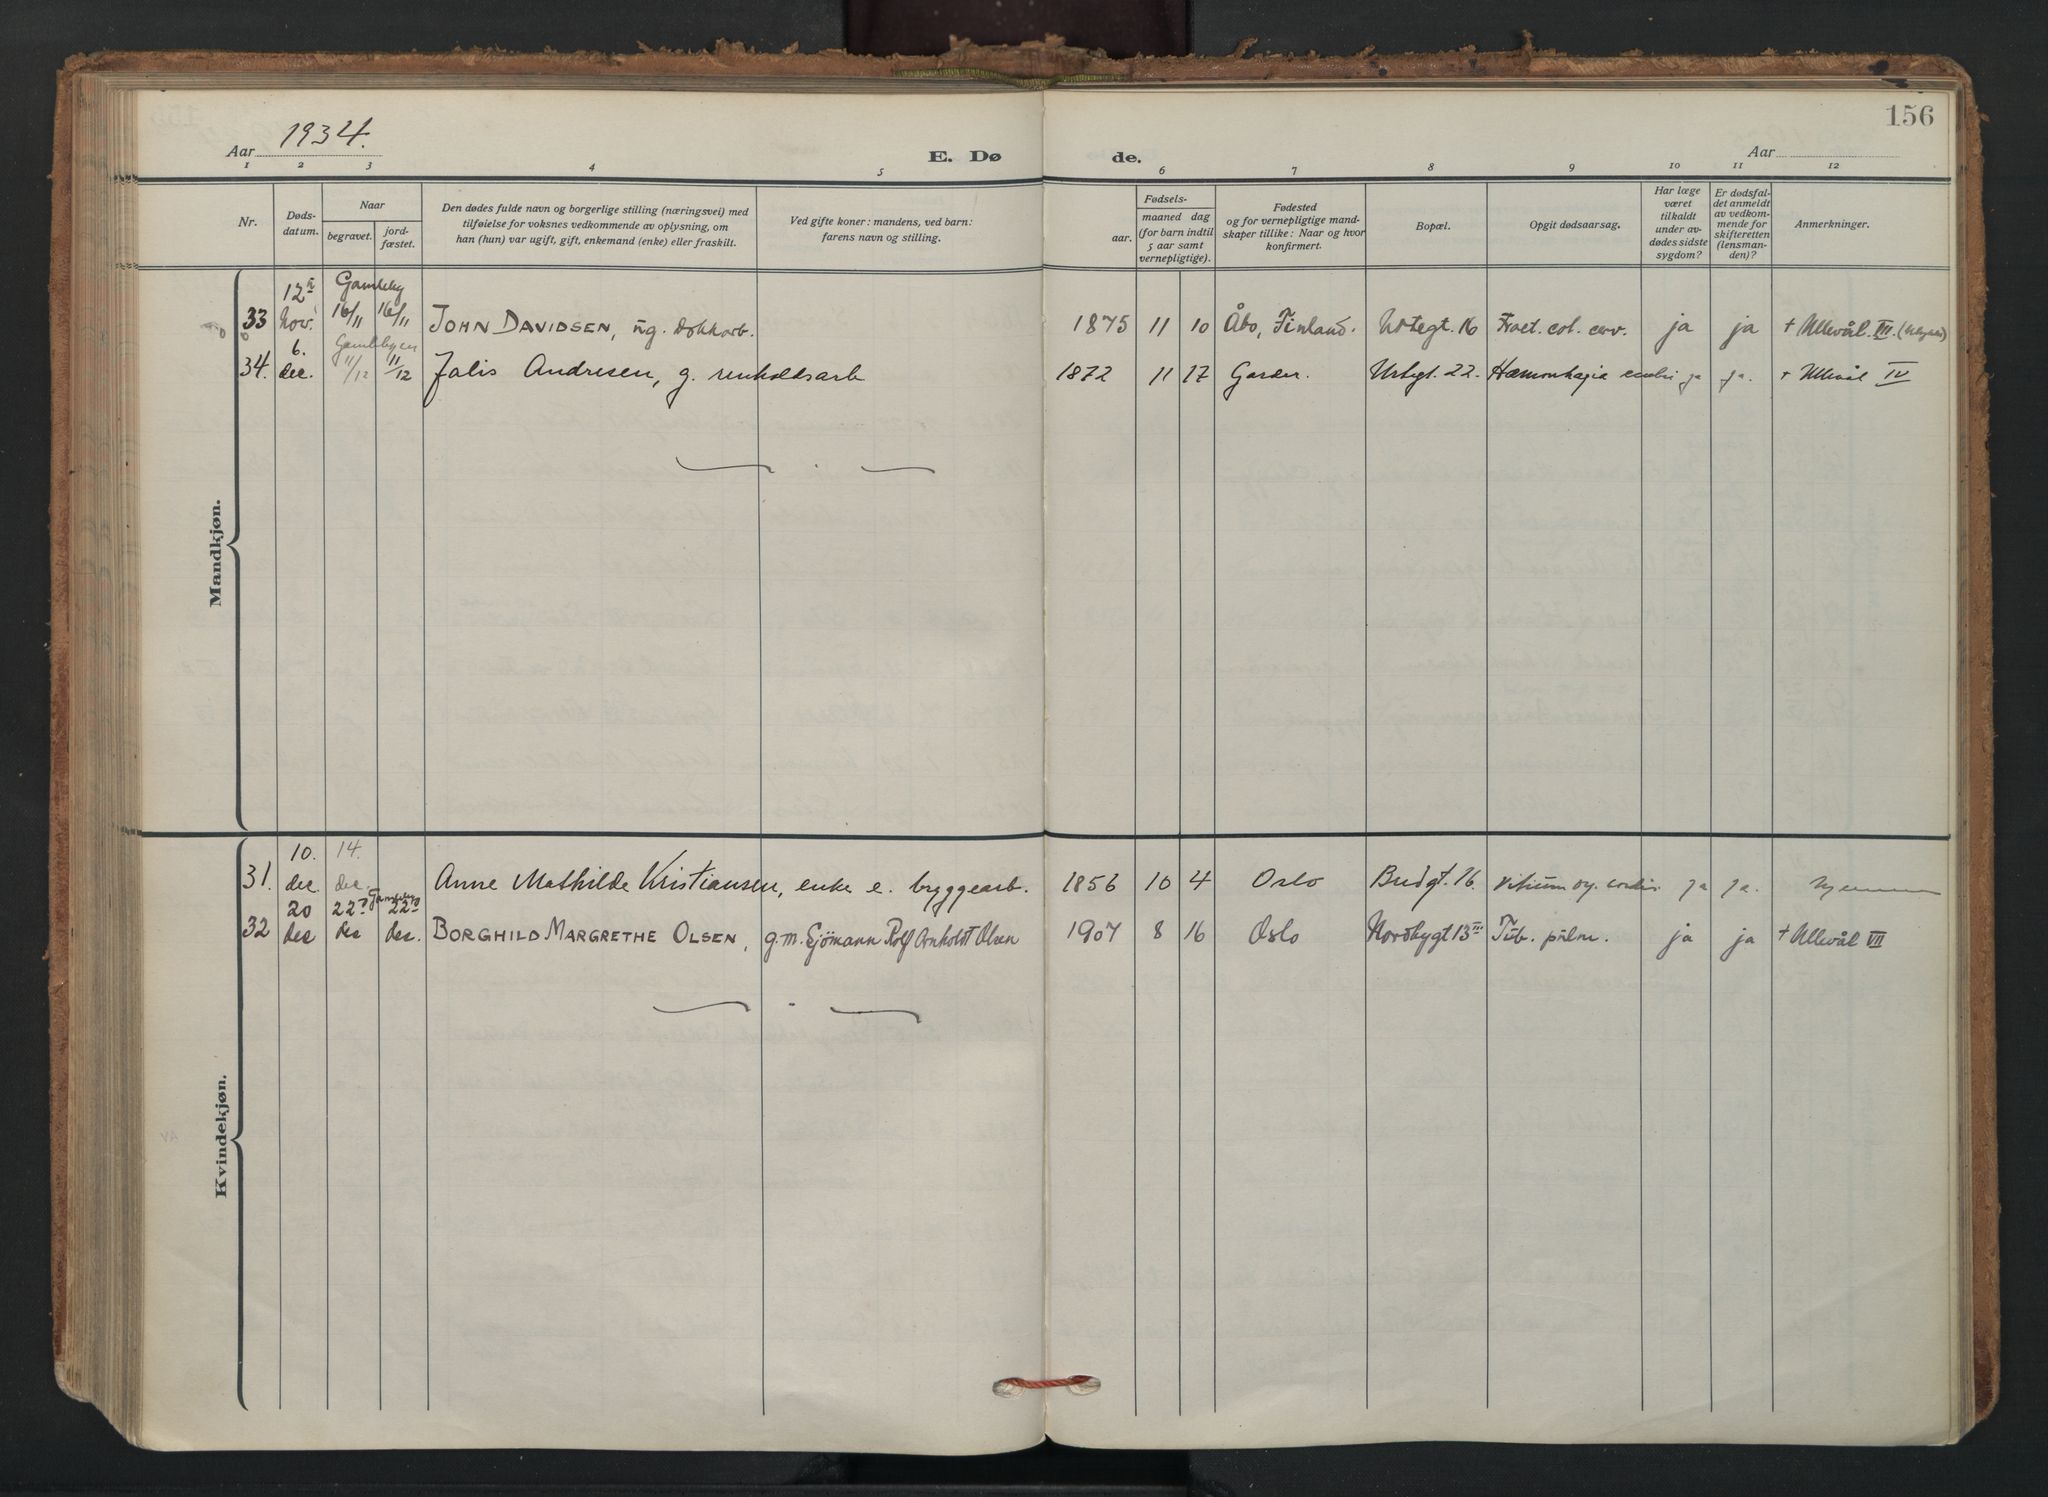 156
Aar 1934.
E. Dø de.
Aar
1 2 3 4 5 6 7 8 9 10 11 12
Nr.
Døds-
datum.
Naar
begravet.
jord-
fæstet.
Den dødes fulde navn og borgerlige stilling (næringsvei) med
tilføielse for voksnes vedkommende av oplysning, om
han (hun) var ugift, gift, enkemand (enke) eller fraskilt.
Ved gifte koner: mandens, ved barn:
farens navn og stilling.
Fødsels-
aar.
maaned dag
(for barn indtil
5 aar samt
vernepligtige).
Fødested
og for vernepligtige mand-
skaper tillike: Naar og hvor
konfirmert.
Bopæl.
Opgit dødsaarsag.
Har læge
været
tilkaldt
under av-
dødes sidste
sygdom?
Er dødsfal-
det anmeldt
av vedkom-
mende for
skifteretten
(lensman-
den)?
Anmerkninger.
Mandkjøn.
12 Gamleby
33 Nov. 16/11 16/11 JOHN DAVIDSEN, ug. dokkarb. 1875 11 10 Åbo, Finland. 16 Fract. col. ja ja + Ullevål. III.
6. Gamlebyen
34. dec. 11/12 11/12 Julis Andresen, g. renholdsarb 1872 11 17 Garder. Urtegt. 22. Hæmorrhagia cerebri ja ja. + Ullevål IV
Kvindekjøn.
10. 14.
31. dec. dec. Anne Mathilde Kristiansen, enke e. byggearb. 1856 10 4 Oslo 16. Vitium org. cordis ja ja. Hjemme
20 22 Gamleby 22
32 dec dec dec. BORGHILD MARGRETHE OLSEN, g.m. Sjömann Rolf Arnholst Olsen 1907 8 16 Oslo Nordbygt 13 III Tub. pulm. ja ja + Ullevål VII